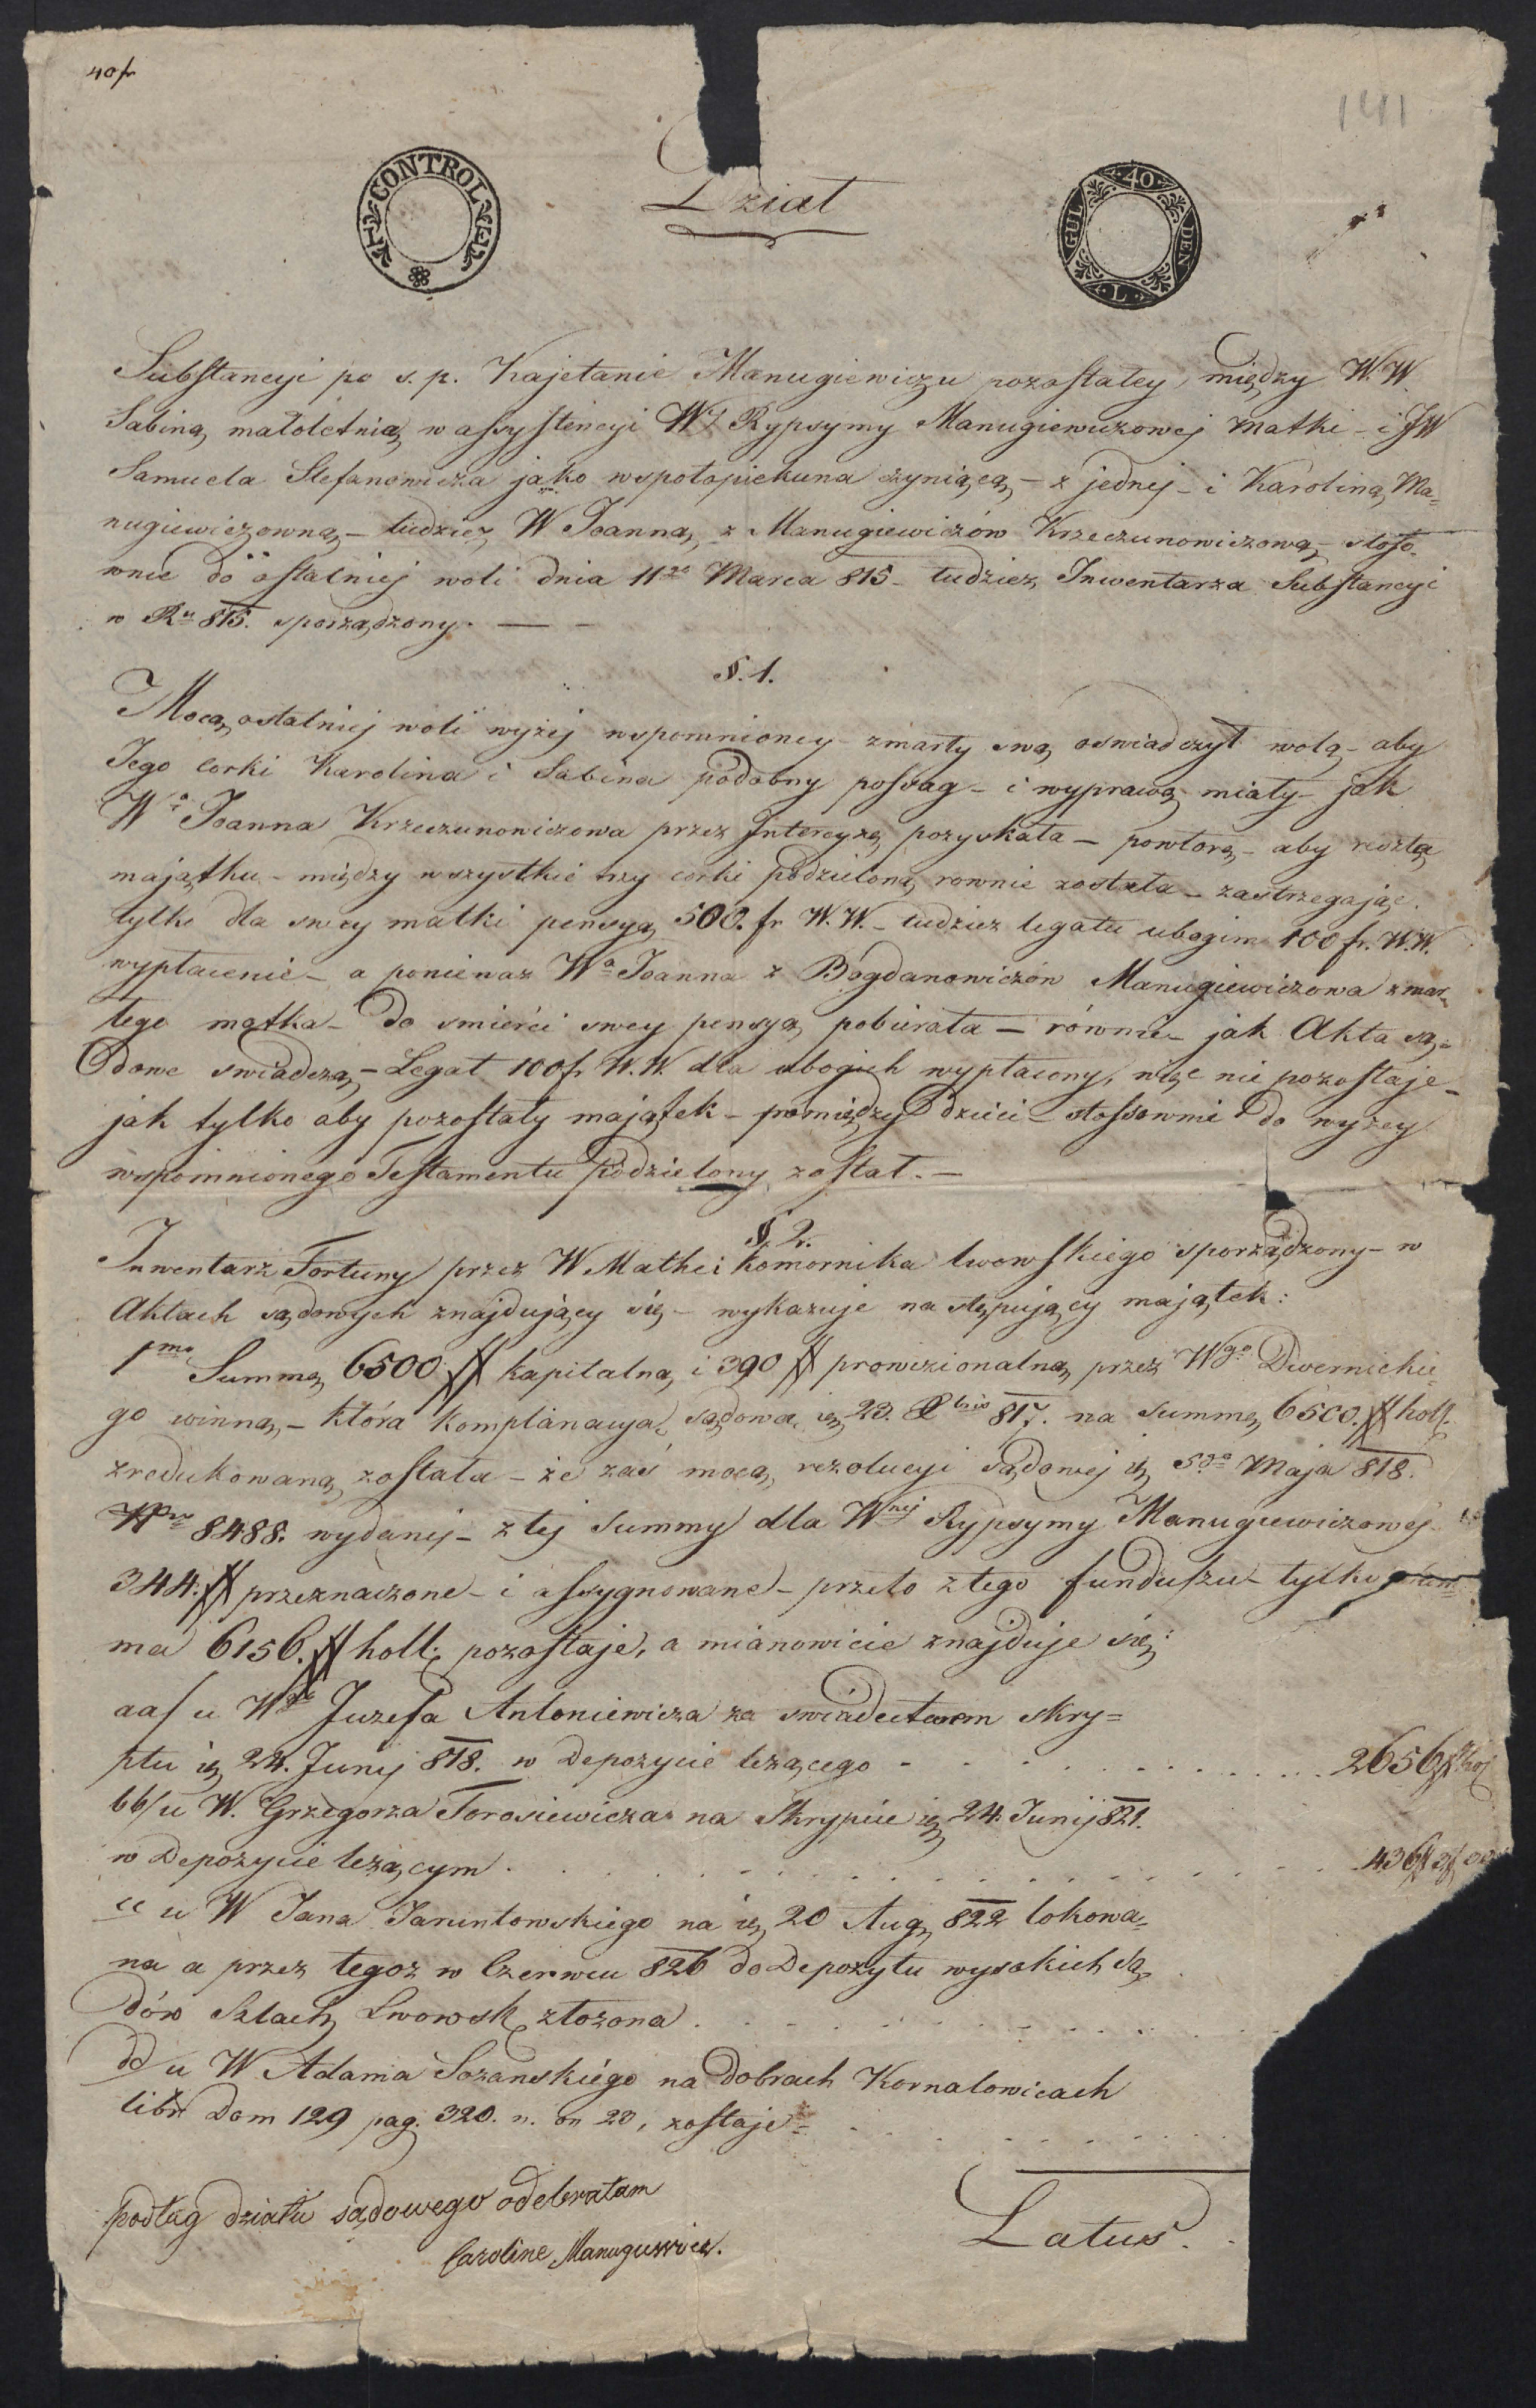 40 fr
141
CONTROLE
40 GULDEN L
Dział
Substancyi po s. p. Kajetanie Manugiewiczu pozostałey, między W.W.
Sabiną małoletnią w assystencyi Wj Rypsymy Manugiewiczowej matki - i JW
Samuela Stefanowicza jako wspołopiekuna czyniącą - z jednej - i Karoliną Ma=
nugiewiczowną - tudzież W Joanną z Manugiewiczów Krzeczunowiczową - stoso=
wnie do ostatniej woli dnia 11go Marca 815 - tudzież Inwentarza Substancyi
w Ru 815. sporządzony. —
§. 1.
Mocą ostatniej woli wyżej wspomnioney zmarły swą oswiadczył wolą - aby
Jego corki Karolina i Sabina podobny possag - i wyprawą miały jak
Wa Joanna Krzeczunowiczowa przez Intercyzę pozyskała - powtóre - aby reszta
majątku - między wszystkie trzy corki podzieloną rownie została - zastrzegając
tylko dla swey matki pensyą 500. fr W.W. - tudzież legatu ubogim 100 fr. W.W.
wypłacenie - a ponieważ Wa Joanna z Bogdanowiczów Manugiewiczowa zmar=
łego matka - do smierci swey pensyą pobierała - równie - jak Akta są=
dowe swiadczą - Legat 100 fr W.W. dla ubogich wypłacony, więc nie pozostaje -
jak tylko aby pozostały majątek - pomiędzy dzieci - stossownie do wyzey
wspomnionego Testamentu podzielony został. —
§. 2.
Inwentarz Fortuny przez W Mathei Komornika lwowskiego sporządzony - w
Aktach sądowych znajdujący się - wykazuje następujący majątek:
1mo Summę 6500 # kapitalną i 390 # prowizionalną przez Wgo Dwernickie=
go winną - która komplanacyą sądową 23. 817. na summę 6500. # holl.
zredukowaną została - że zaś mocą rezolucyi sądowej 5go Maja 818.
Nro 8488. wydanej - z tej summy dla Wnej Rypsymy Manugiewiczowej
344: # przeznaczone - i assygnowane - przeto z tego funduszu - tylko sum=
ma 6156. # holl: pozostaje, a mianowicie znajduje się:
aa/ u Wgo Juzefa Antoniewicza za swiadectwem skry=
ptu 24. Junij 818. w Depozycie leżącego . . . . . 2656 # hol
bb/ u W. Grzegorza Torosiewicza na Skrypcie 24. Junij 821.
w Depozycie leżącym . . . . . 436 #
cc u W Jana Jaruntowskiego na 20 Aug 822 lokowa=
na a przez tegoż w Czerwcu 826 do Depozytu wysokich Są=
dów Szlach Lwowsk złożona . . . . .
dd/ u W Adama Sozanskiego na dobrach Kornalowicach
libr Dom 129 pag. 320. n. on 23, zostaje . . . . .
Latus.
podług działu sądowego odebrałam
Caroline Manugiewicz.